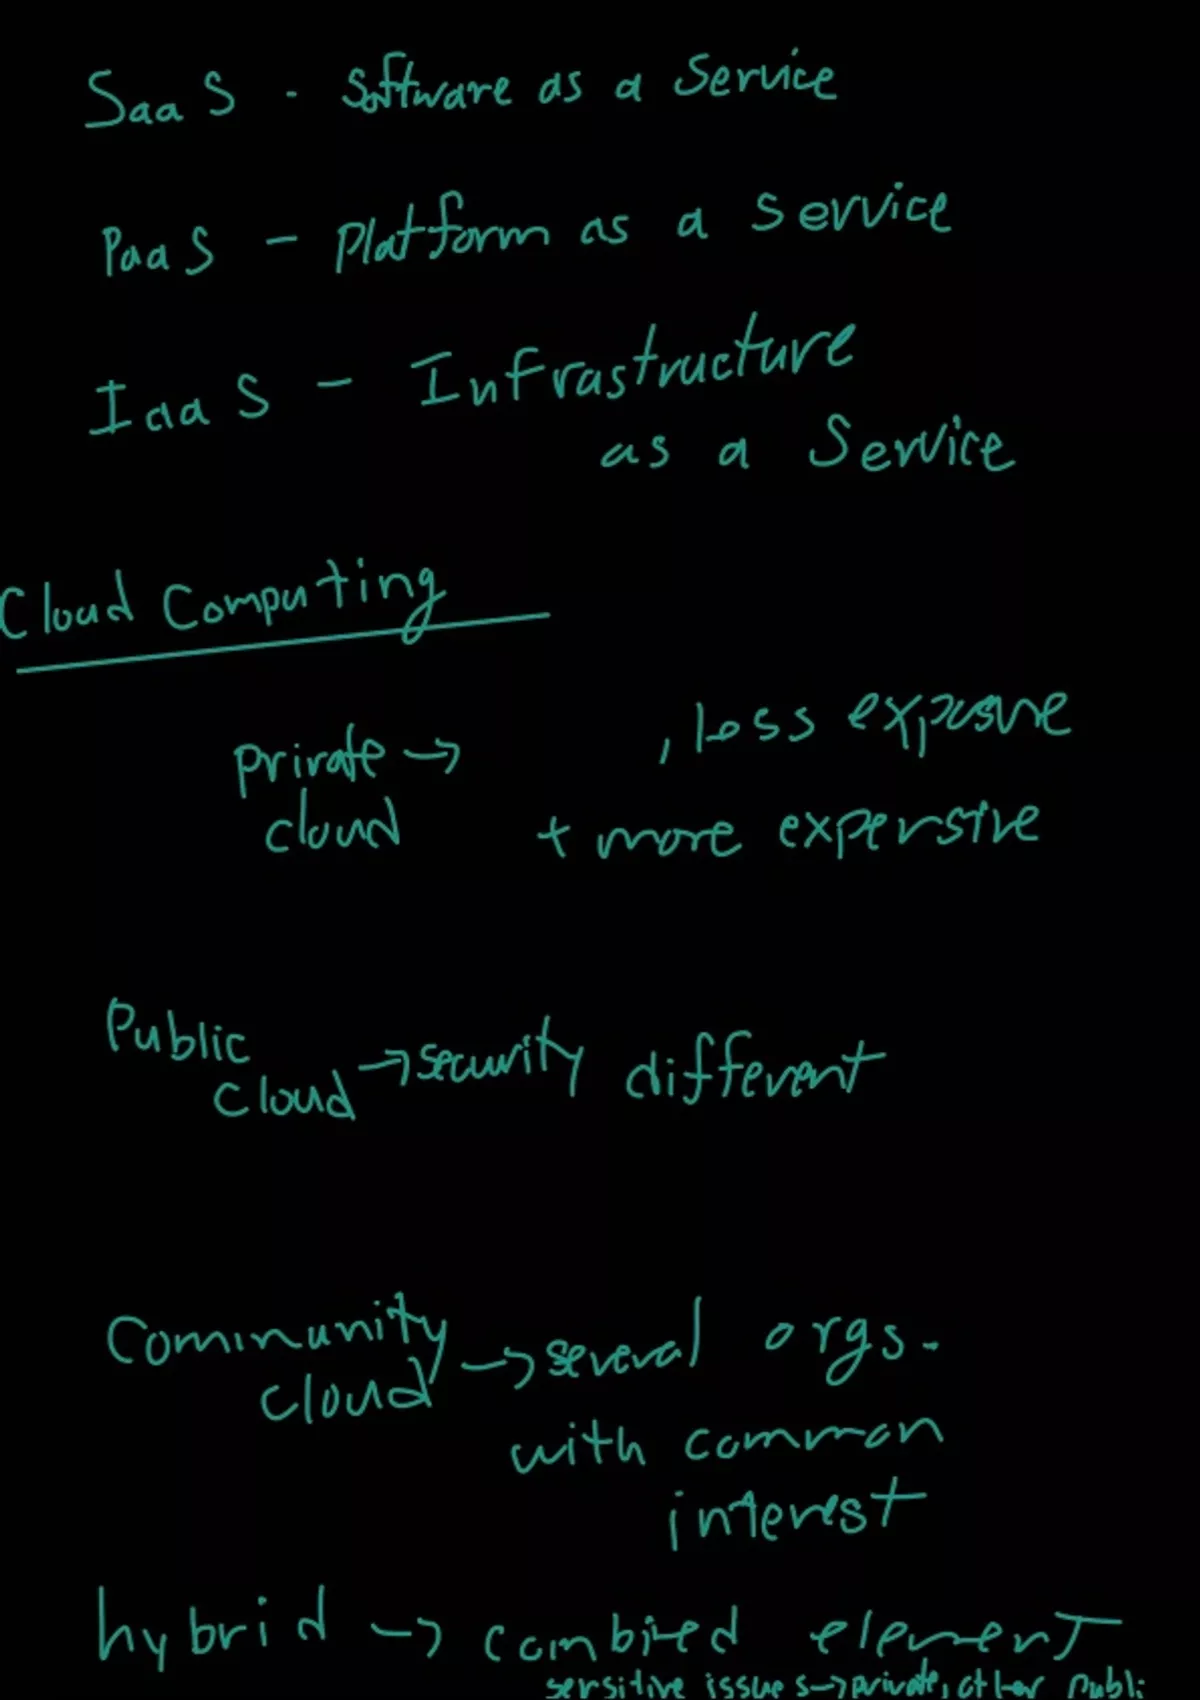 SaaS - Software as a Service
PaaS - Platform as a service
IaaS - Infrastructure
as a Service
Cloud Computing
private → , less exposure
cloud + more expensive
Public
cloud → security different
Community
cloud → several orgs.
with common
interest
hybrid → combined element
sensitive issues → private, other publi